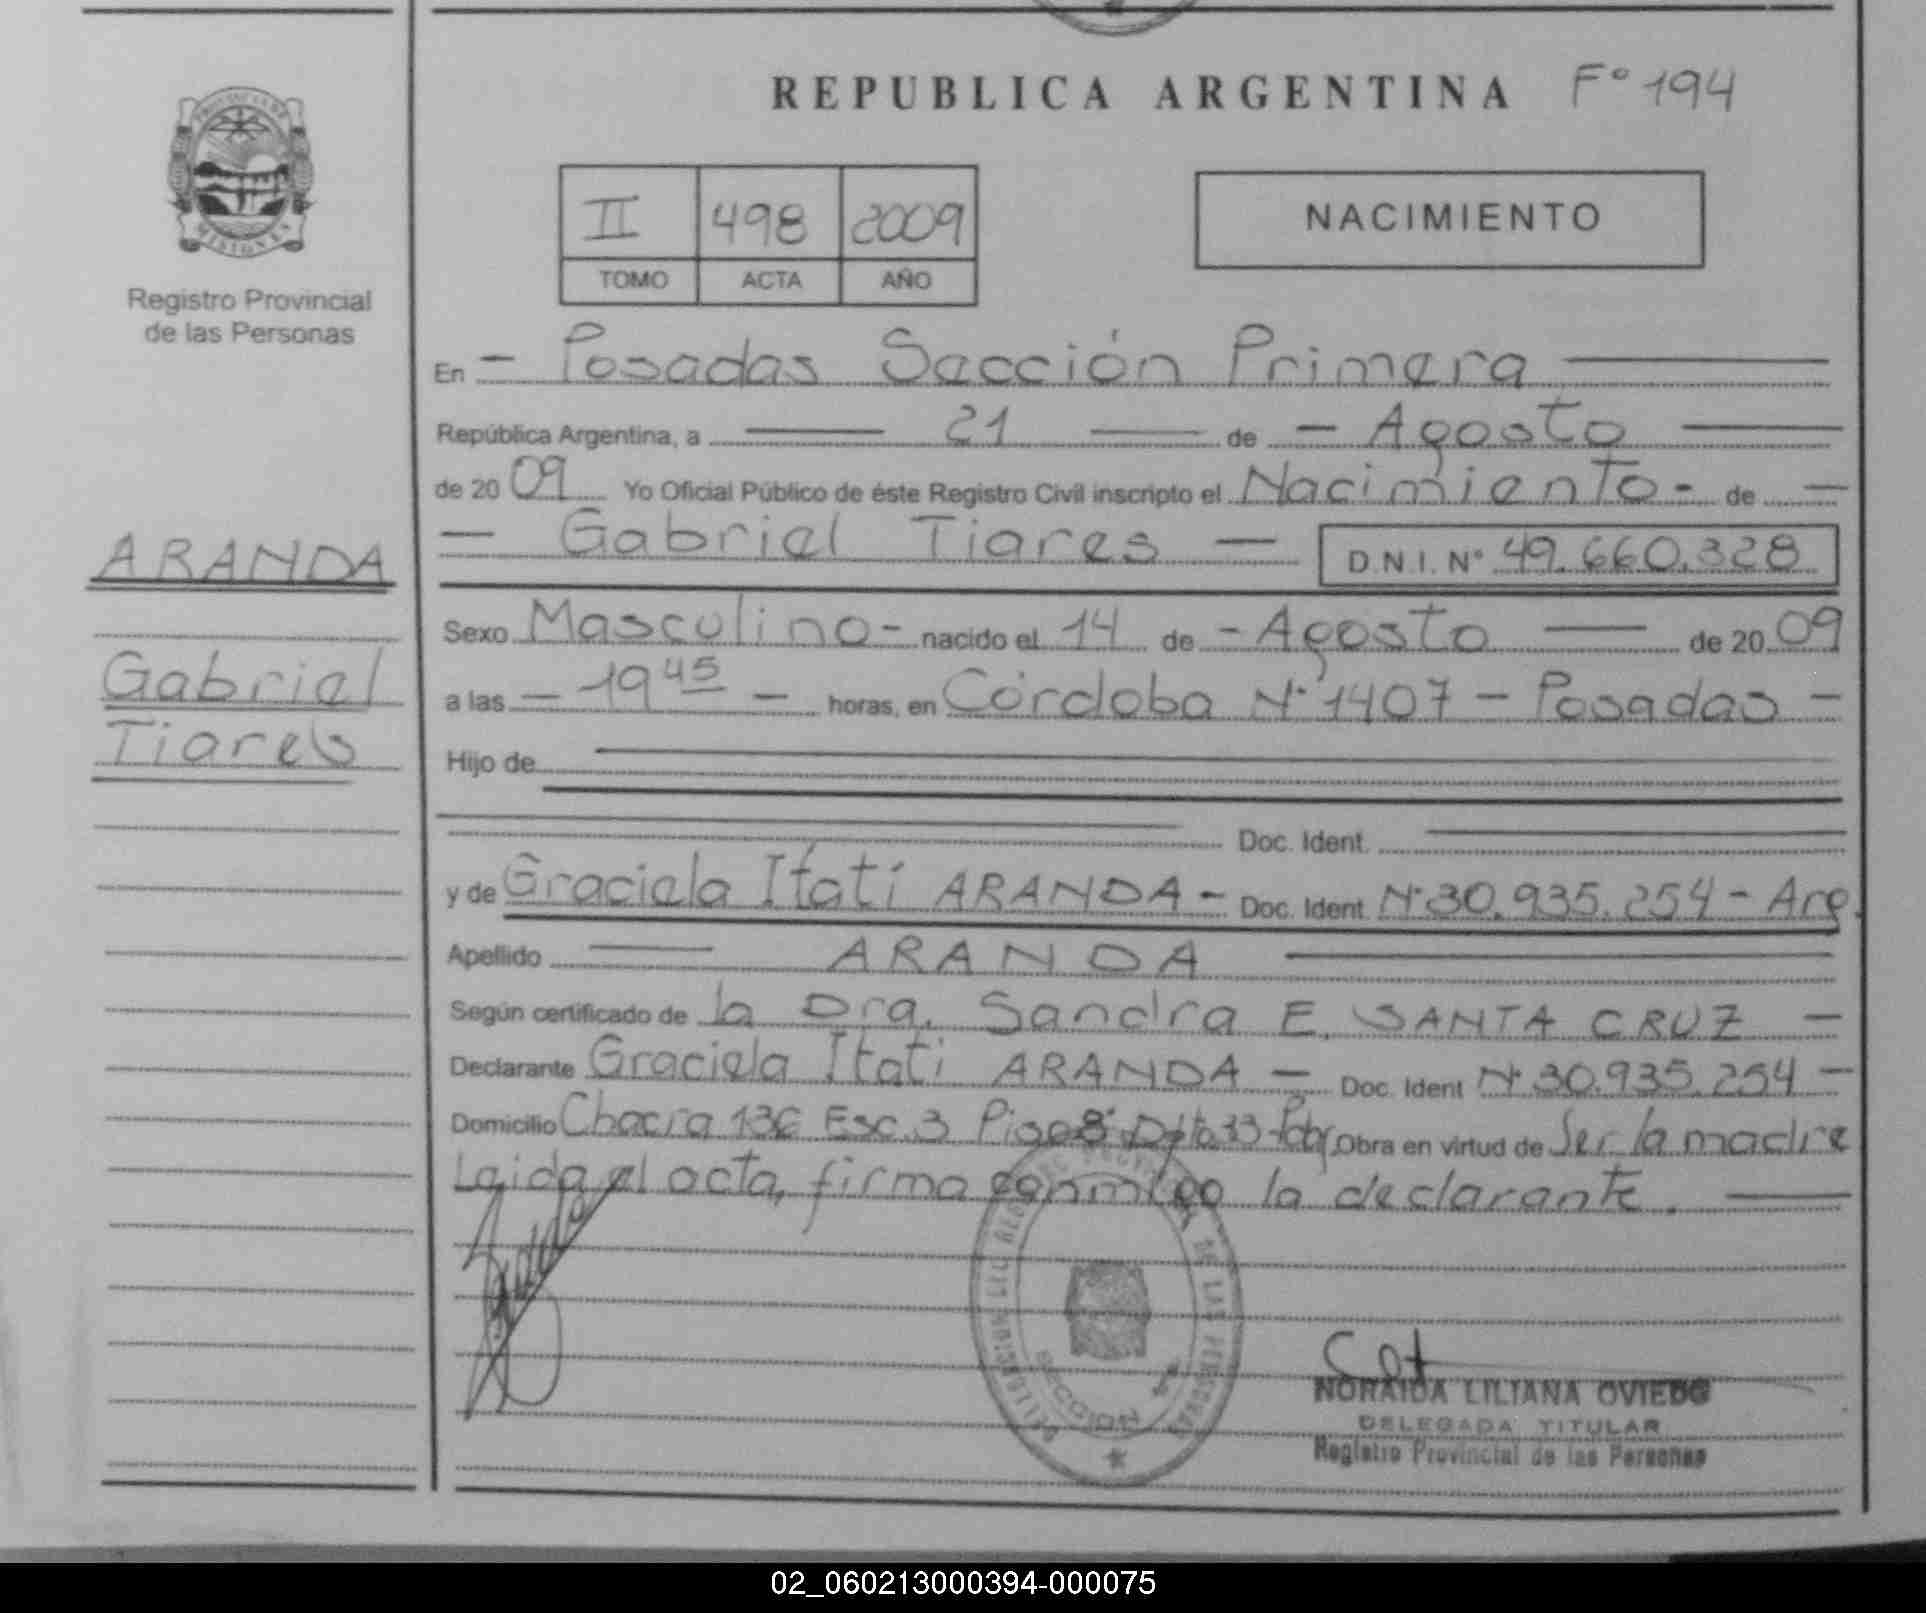 REPUBLICA ARGENTINA F° 194
PROVINCIA DE
MISIONES
Registro Provincial
de las Personas
II 498 2009
TOMO ACTA AÑO
NACIMIENTO
En - Posadas Sección Primera
República Argentina, a 21 de - Agosto
de 20 09 Yo Oficial Público de éste Registro Civil inscripto el Nacimiento - de -
- Gabriel Tiares - D.N.I. N° 49.660.328
ARANDA
Gabriel
Tiares
Sexo Masculino - nacido el 14 de - Agosto de 20 09
a las - 19 45 - horas, en Córdoba N° 1407 - Posadas -
Hijo de
Doc. Ident.
y de Graciela Itatí ARANDA - Doc. Ident N° 30.935.254 - Arg.
Apellido ARANDA
Según certificado de la Dra. Sandra E. SANTA CRUZ -
Declarante Graciela Itatí ARANDA - Doc. Ident N° 30.935.254 -
Domicilio Chacra 136 Esc. 3 Piso Dpto. 33 Obra en virtud de Ser la madre
Leida el acta, firma conmigo la declarante.
DE LAS PERSONAS
SECCION 1a
NORAIDA LILIANA OVIEDO
DELEGADA TITULAR
Registro Provincial de las Personas
02_060213000394-000075